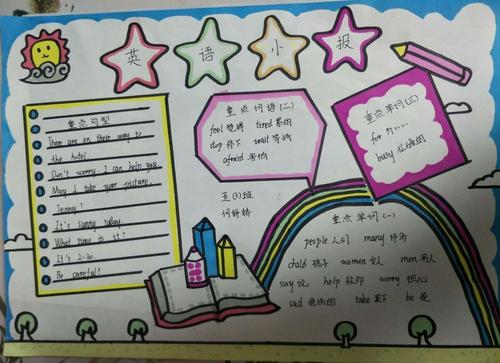 英语小报
重点句型
There are on their way to
the hotel.
Don't worry. I can help you.
May I take your picture,
Jenny?
It's sunny today.
What time is it?
It's 2:30.
Be careful!
重点词语(二)
feel 觉得 tired 累的
stop 停下 wait 等待
afraid 害怕
五(3)班
重点单词(三)
for 为……
busy 忙碌的
重点单词(一)
people 人们 many 许多
child 孩子 women 女人 men 男人
say 说 help 帮助 worry 担心
sad 悲伤的 take 买下 be 是